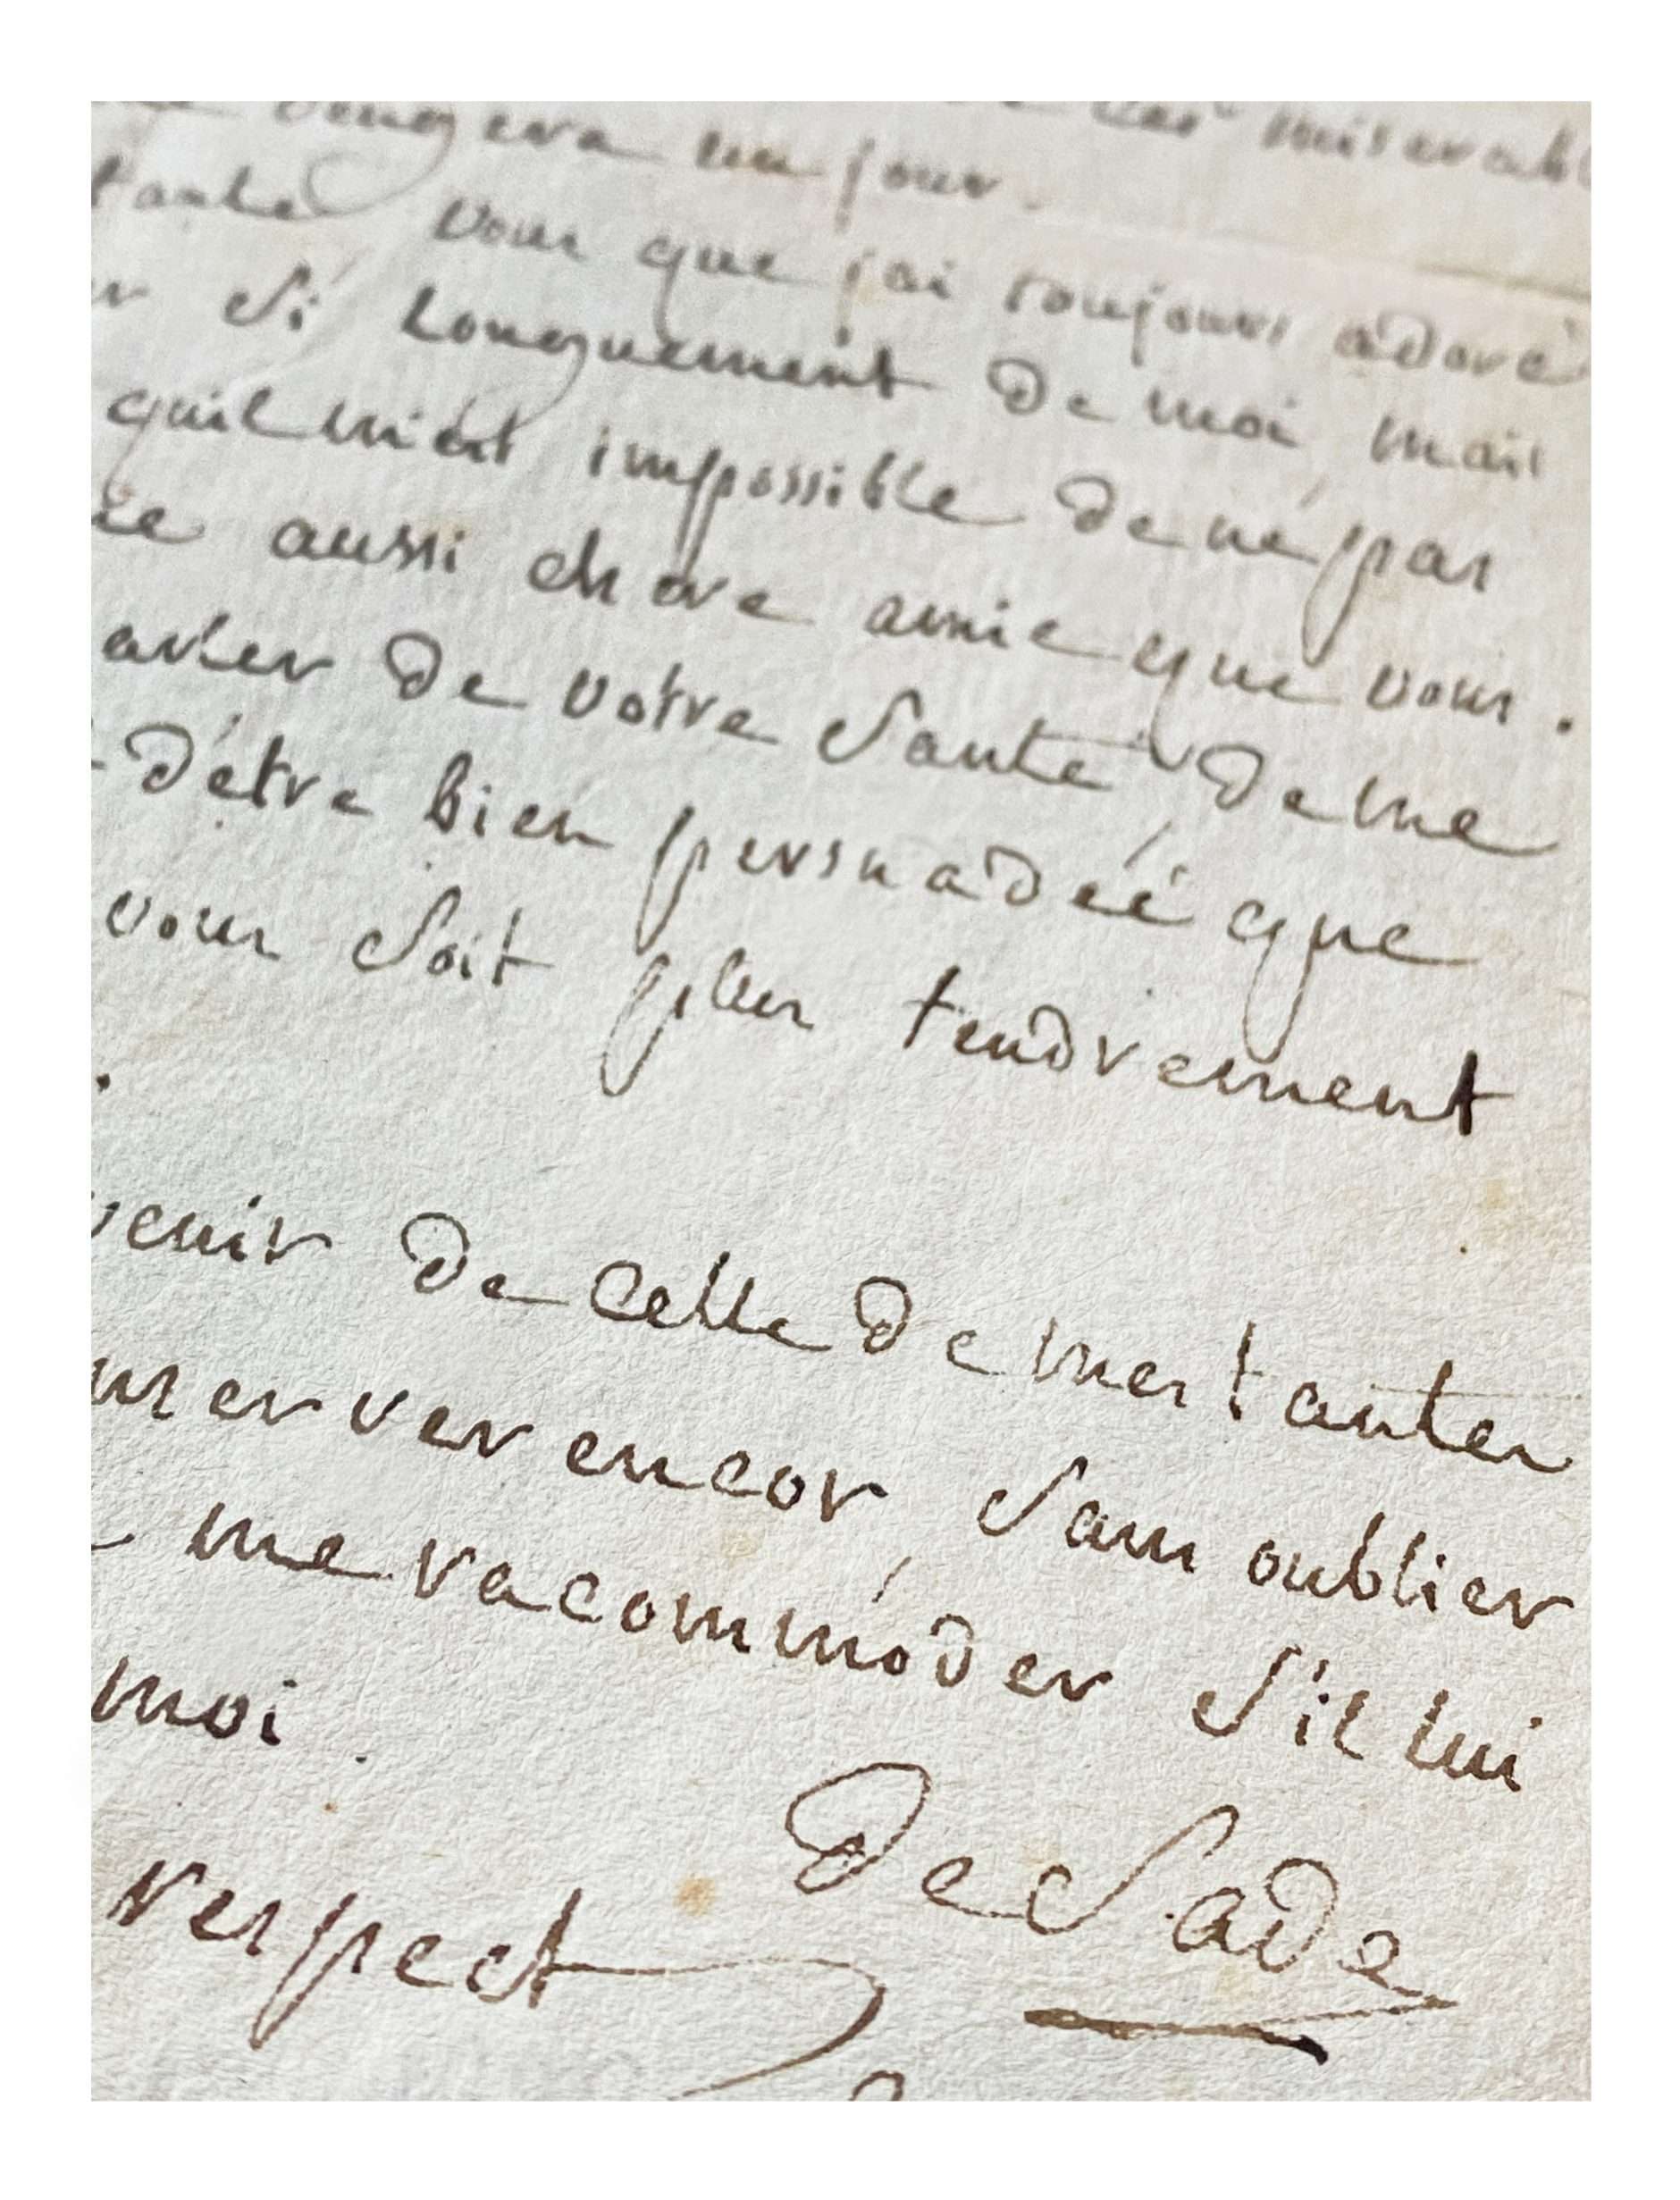 vengera un jour. ces miserabl
tante vous que j'ai toujours adoré
r si longuement de moi, mais
quil m'est impossible de ne pas
ce aussi chere amie que vous.
arler de votre santé, de me
d'être bien persuadéé que
vous soit plus tendrement
.
venir de celle de mes tantes
nserver encor, sans oublier
me racommóder s'il lui
moi.
De Sade
respect